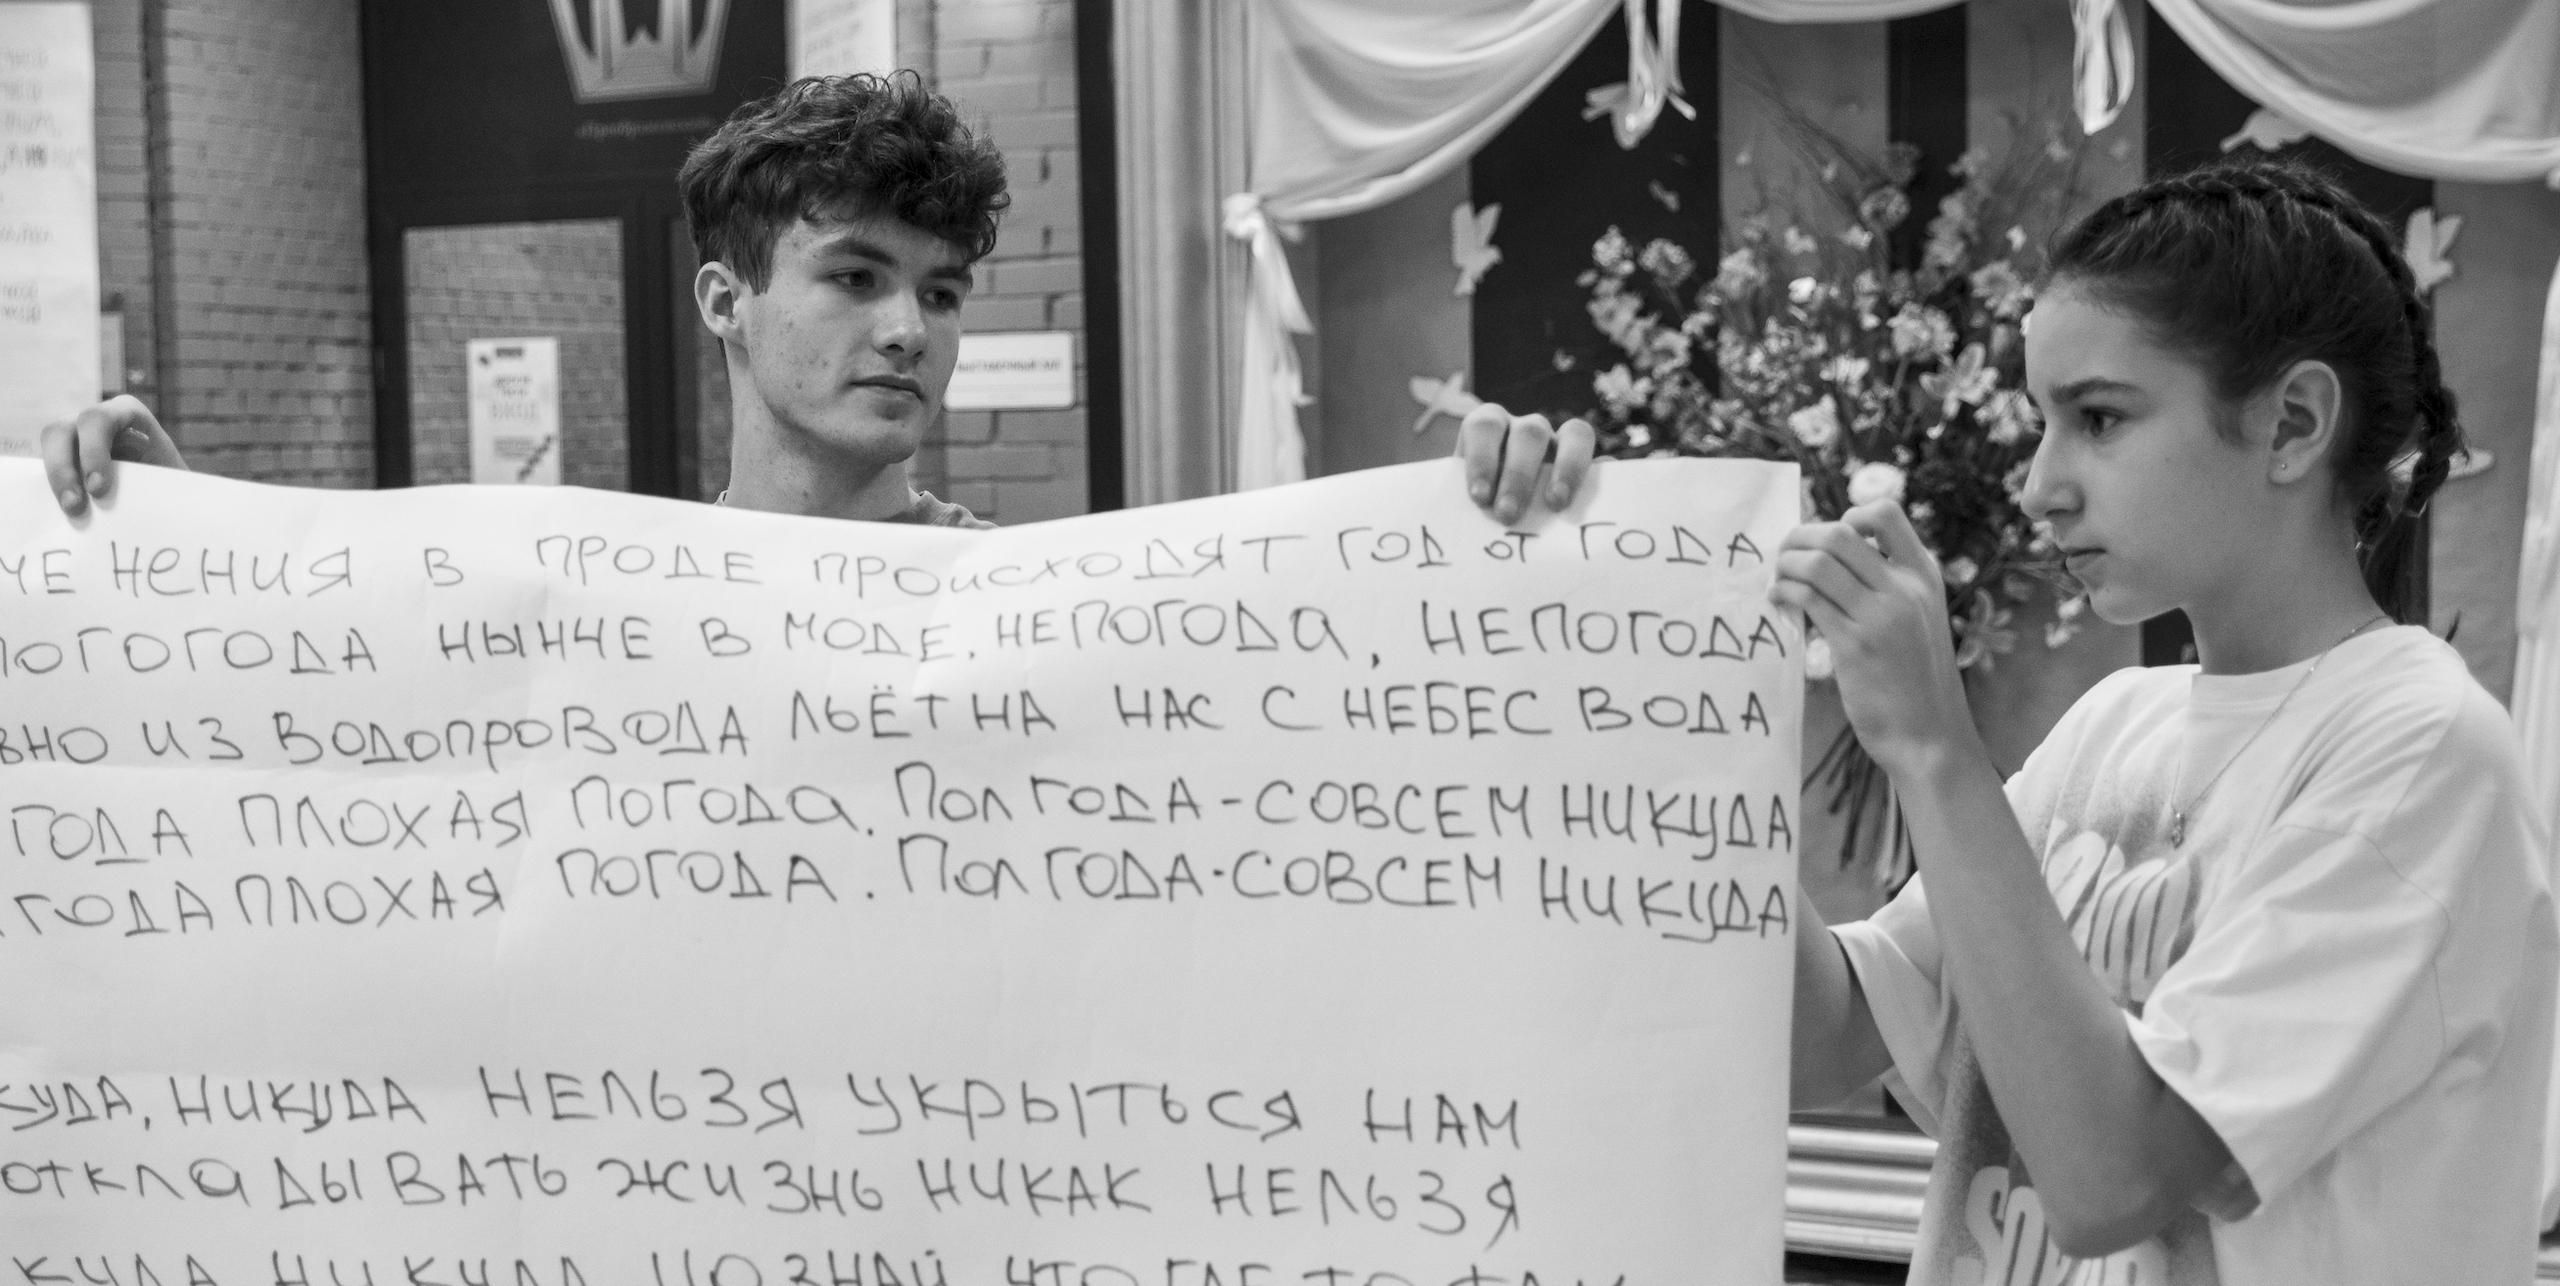 ЧЕНЕНИЯ В ПРОДЕ ПРОИСХОДЯТ ГОД ОТ ГОДА
ПОГОГОДА НЫНЧЕ В МОДЕ, НЕПОГОДА, НЕПОГОДА
ВНО ИЗ ВОДОПРОВОДА ЛЬЁТ НА НАС С НЕБЕС ВОДА
ГОДА ПЛОХАЯ ПОГОДА. ПОЛГОДА-СОВСЕМ НИКУДА
ГОДА ПЛОХАЯ ПОГОДА. ПОЛГОДА-СОВСЕМ НИКУДА
КУДА, НИКУДА НЕЛЬЗЯ УКРЫТЬСЯ НАМ
ОТКЛАДЫВАТЬ ЖИЗНЬ НИКАК НЕЛЬЗЯ
КУДА НИКУДА НО ЗНАЙ ЧТО ГДЕ-ТО ТАМ
ВЫСТАВОЧНЫЙ ЗАЛ
ВХОД